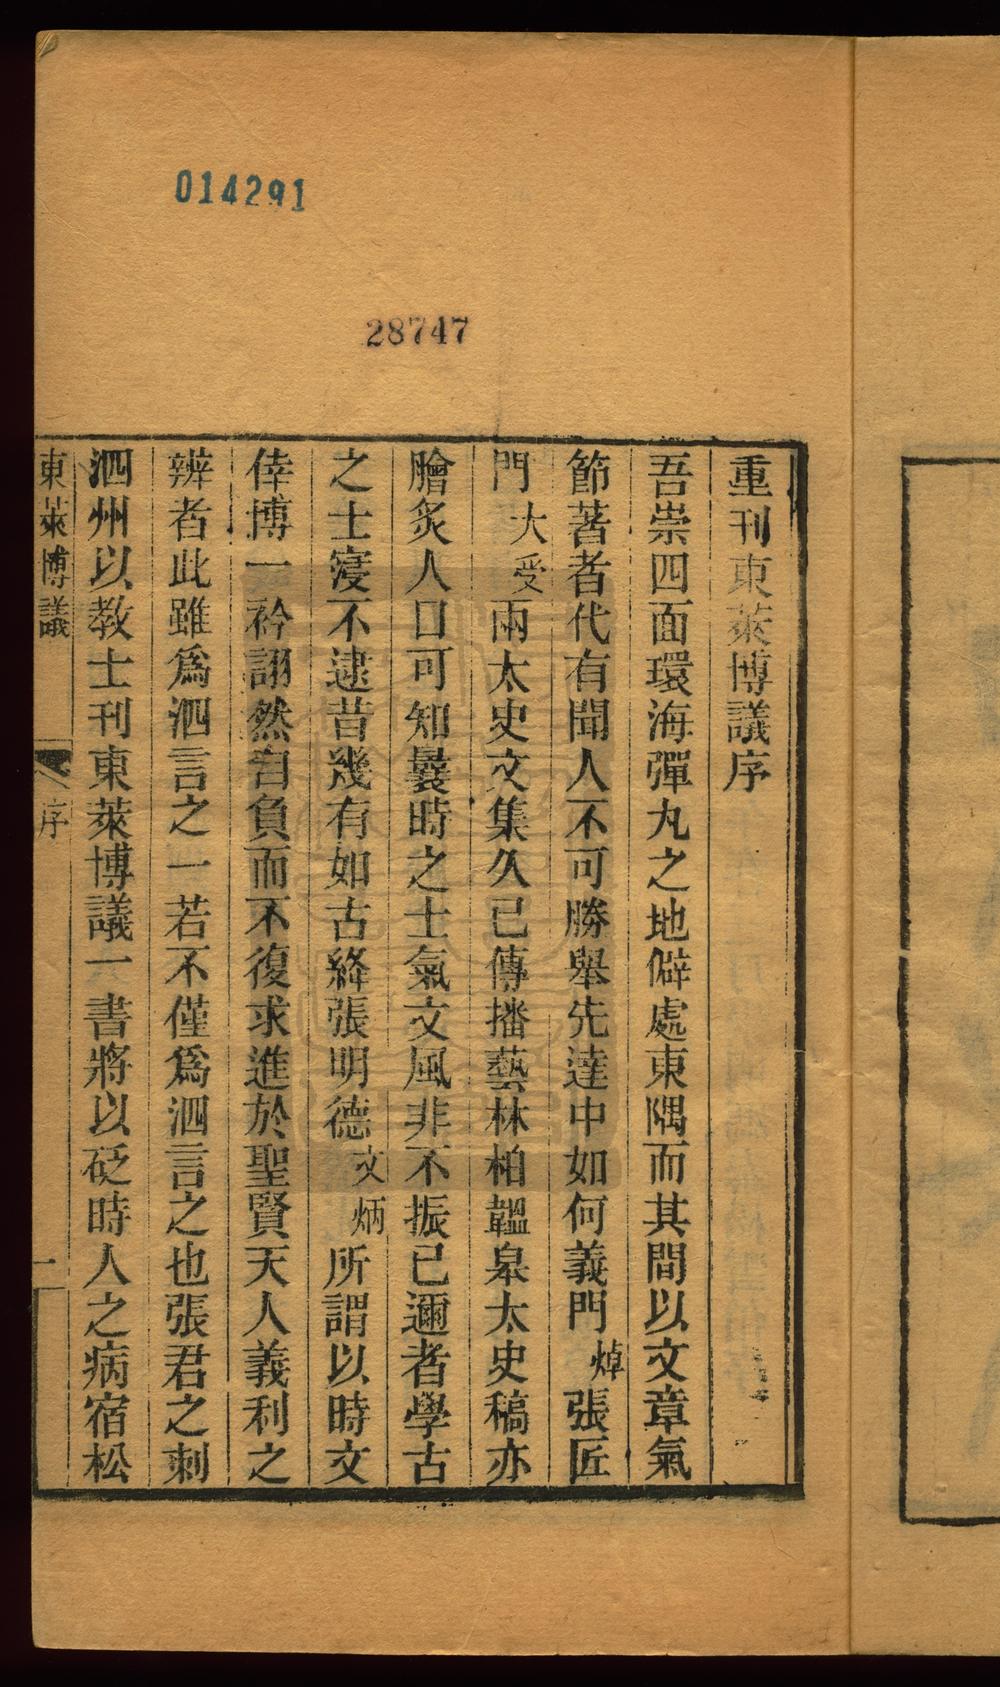 014291
28747
重刊東萊博議序
吾崇四面環海彈丸之地僻處東隅而其間以文章氣
節著者代有聞人不可勝舉先達中如何義門焯張匠
門大受兩太史文集久已傳播藝林柏韞皋太史稿亦
膾炙人口可知曩時之士氣文風非不振已邇者學古
之士寖不逮昔幾有如古絳張明德文炳所謂以時文
倖博一衿詡然自負而不復求進於聖賢天人義利之
辨者此雖爲泗言之一若不僅爲泗言之也張君之刺
泗州以教士刊東萊博議一書將以砭時人之病宿松
東萊博議 序 一